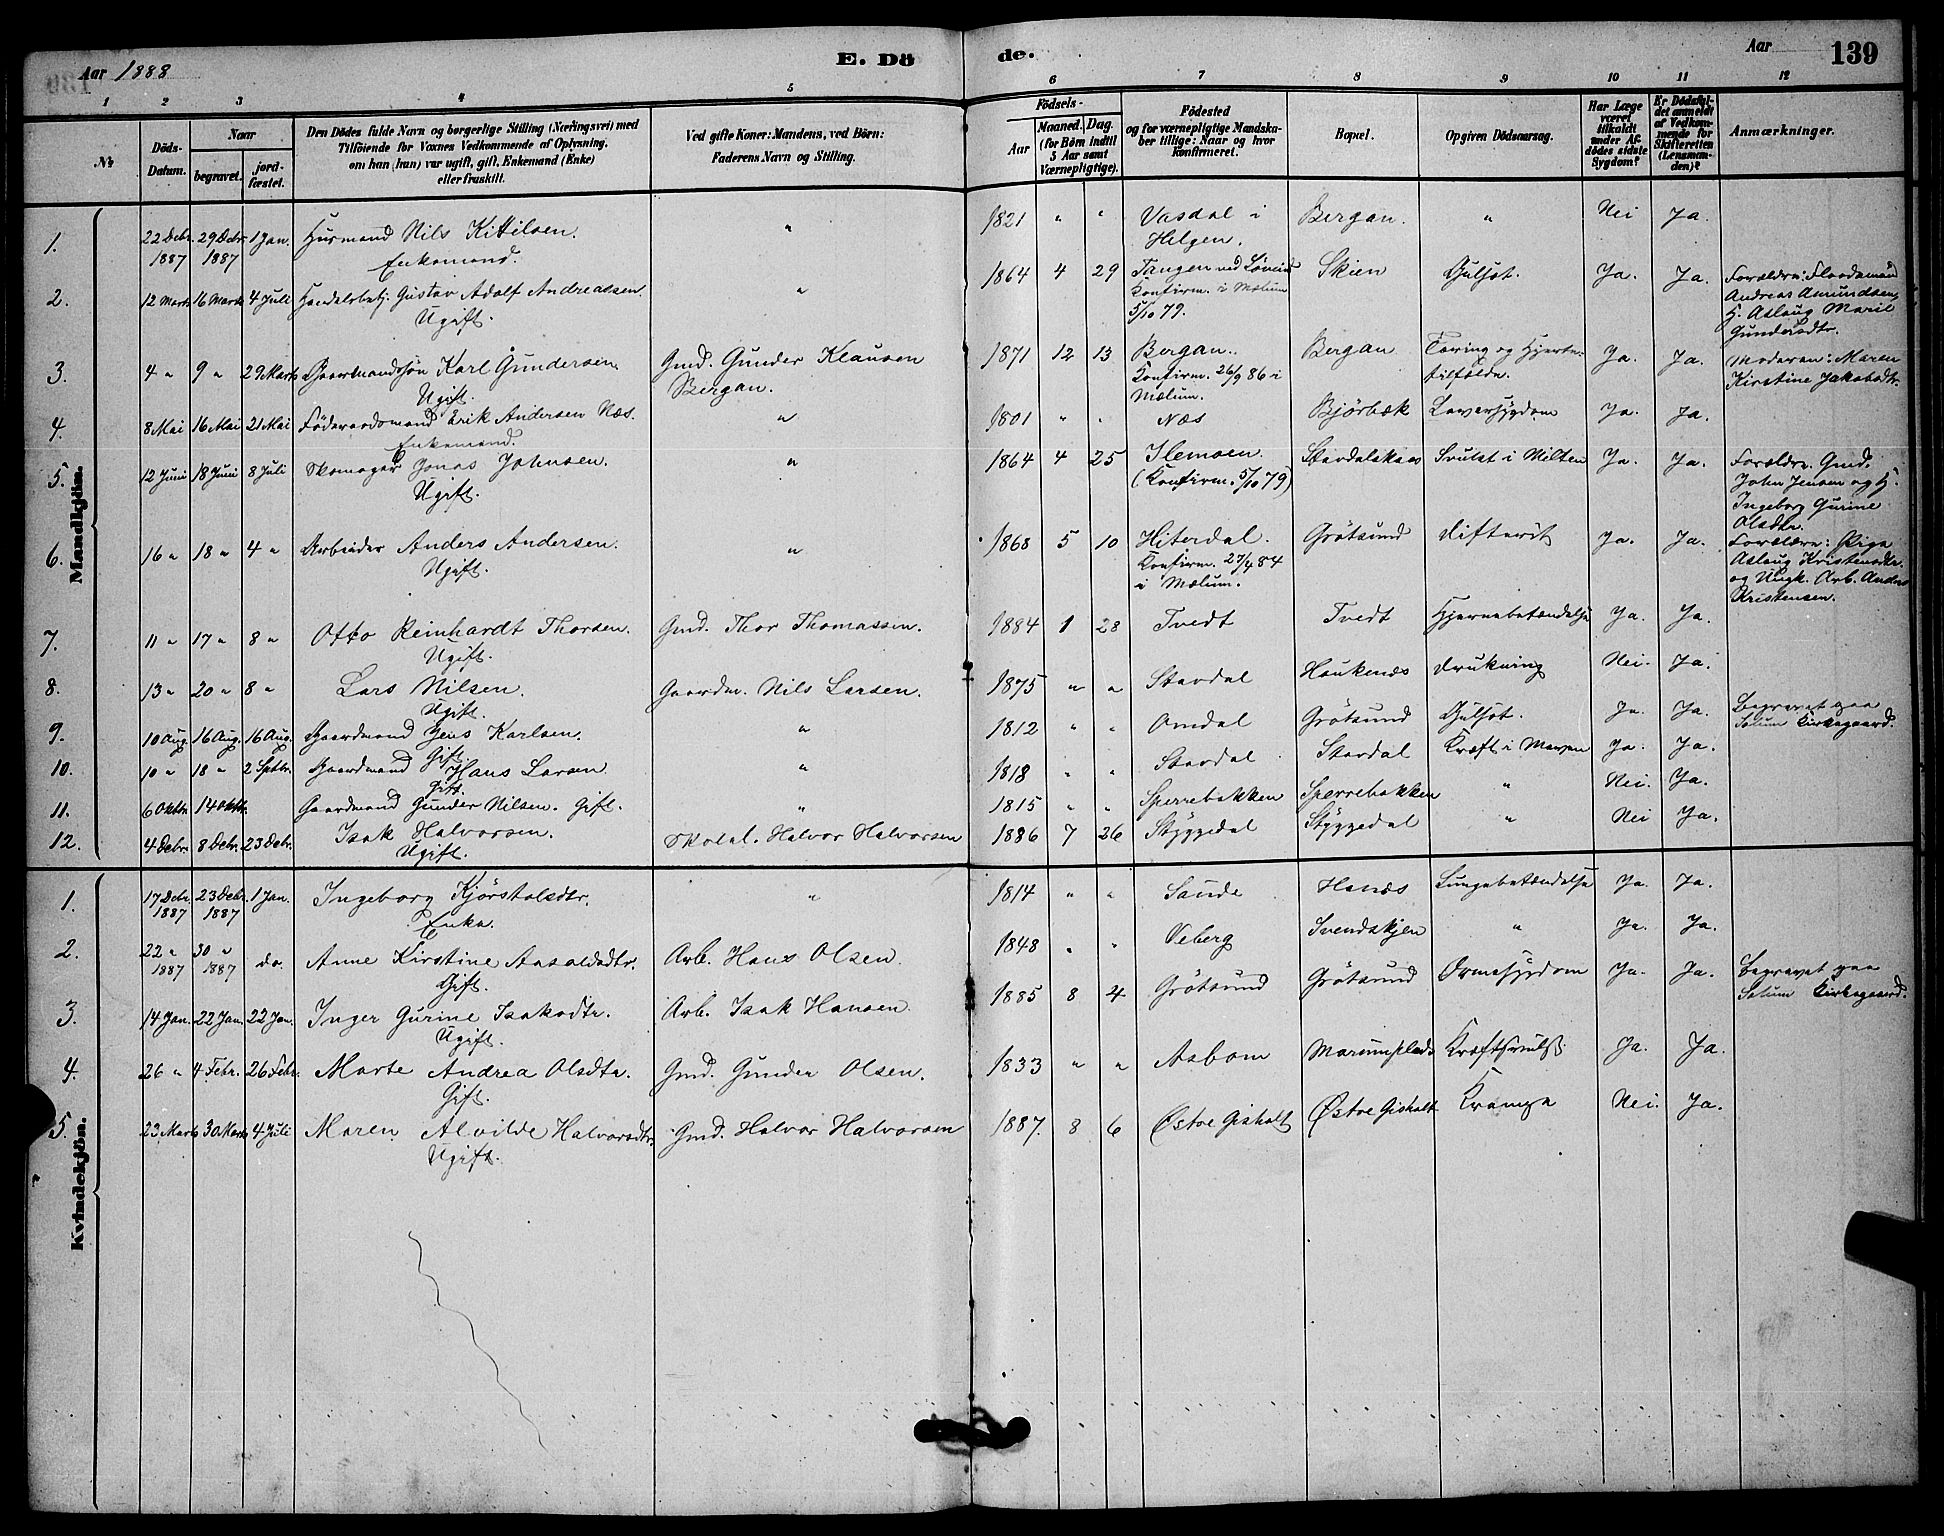 Aar 1888
E. Dö
de.
Aar
139
1 2 3 4 5 6 7 8 9 10 11 12
Nr
Döds-
Datum.
Naar
begravet.
jord-
fæstet.
Den Dödes fulde Navn og borgerlige Stilling (Næringsvei) med
Tilföiende for Voxnes Vedkommende af Oplysning,
om han (hun) var ugift, gift, Enkemand (Enke)
eller fraskilt.
Ved gifte Koner: Mandens, ved Börn:
Faderens Navn og Stilling.
Födsels-
Aar
Maaned. Dag.
(for Börn indtil
5 Aar samt
Værnepligtige).
Födested
og for værnepligtige Mandska-
ber tillige: Naar og hvor
konfirmeret.
Bopæl.
Opgiven Dödsaarsag.
Har Læge
været
tilkaldt
under Af-
dödes sidste
Sygdom?
Er Dödsfal-
det anmeldt
af Vedkom-
mende for
Skifteretten
(Lensman-
den)?
Anmærkninger.
Mandkjön.
1. 22 Debr. 1887 29 Debr. 1887 1 Jan. Husmand Nils Kittilsen. Enkemand. " 1821 " " Vasdal i Helgen. Bergan. " Nei Ja.
2. 12 Marts 16 Marts 4 Juli Handelsbetj. Gustav Adolf Andreassen. Ugift. " 1864 4 29 Tangen ved Løveid Konfirm. i Mælum 5/10 79. Skien Gulsot. Ja. Ja. Forældre: Flaadamand Andreas Amundsen, H. Aslaug Marie Gundersdtr.
3. 4 " 9 " 29 Marts Gaardmandssön Karl Gundersen. Ugift. Gmd. Gunder Klausen Bergan. 1871 12 13 Bergan. Konfirm. 26/9 86 i Mælum. Bergan Tæring og Hjerte- tilfælde. Ja. Ja. Moderen: Maren Kirstine Jakobsdtr.
4. 8 Mai 16 Mai 21 Mai Föderaadsmand Erik Andersen Næs. Enkemand. " 1801 " " Næs Bjørbæk Leversygdom Ja. Ja.
5. 12 Juni 18 Juni 8 Juli Skomager Jonas Johnsen. Ugift. " 1864 4 25 Ilemoen. (Konfirm. 5/10 79) Svulst i Milten Ja. Ja. Forældre. Gmd. John Jensen og H. Ingeborg Gurine Olsdtr.
6. 16 " 18 " 4 " Arbeider Anders Andersen. Ugift. " 1868 5 10 Hiterdal. Konfirm. 27/4 84 i Mælum. Grötsund Difterit Ja. Ja. Forældre: Pige Aslaug Kristensdtr. og Ungk. Arb. Anders Kristensen.
7. 11 " 17 " 8 " Otto Reinhardt Thorsen. Ugift. Gmd. Thor Thomassen. 1884 1 28 Tvedt Tvedt Hjernebetændelse Ja. Ja.
8. 13 " 20 " 8 " Lars Nilsen. Ugift. Gaardm. Nils Larsen. 1875 " " Stavdal Haukenæs Drukning Nei. Ja.
9. 10 Aug. 16 Aug. 16 Aug. Gaardmand Jens Karlsen. Gift. " 1812 " " Omdal Grötsund Gulsot. Ja. Ja. Begravet paa Solum Kirkegaard.
10. 10 " 18 " 2 Septbr. Gaardmand Hans Larsen Gift. " 1818 " " Stavdal Stavdal Kræft i Maven Ja. Ja.
11. 6 Oktbr. 14 Oktbr. Gaardmand Gunder Nilsen. Gift. " 1815 " " Sperrebakken Sperrebakken " Nei. Ja.
12. 4 Debr. 8 Debr. 23 Debr. Isak Halvorsen. Ugift. Halvor Halvorsen 1886 7 26 Styggedal Styggedal " Nei Ja.
Kvindekjön.
1. 17 Debr. 1887 23 Debr. 1887 1 Jan. Ingeborg Kjörstolsdtr. Enke. " 1814 " " Saude Hanæs Lungebetændelse Ja. Ja.
2. 22 " 1887 30 " 1887 do. Anne Kirstine Aasoldsdtr. Gift. Arb. Hans Olsen. 1848 " " Veberg Svendskjen " Ja. Ja.
3. 14 Jan. 22 Jan. 22 Jan. Inger Gurine Isaksdtr. Ugift. Arb. Isak Hansen. 1885 8 4 Grötsund Grötsund Ormesygdom Ja. Ja. Begravet paa Solum Kirkegaard.
4. 26 " 4 Febr. 26 Febr. Marte Andrea Olsdtr. Gift. Gmd. Gunder Olsen. 1833 " " Aasbom Kræftsvulst Ja. Ja.
5. 23 Marts 30 Marts 4 Juli Maren Alvilde Halvorsdtr. Ugift. Gmd. Halvor Halvorsen 1887. 8 6 Østre Gisholt Østre Gisholt Krampe Nei. Ja.